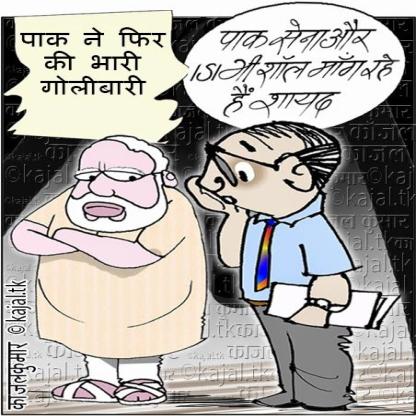 पाक ने फिर
की भारी
गोलीबारी
पाक सेना और
ISI भी शॉल माँग रहे
हैं शायद
काजलकुमार ©kajal.tk